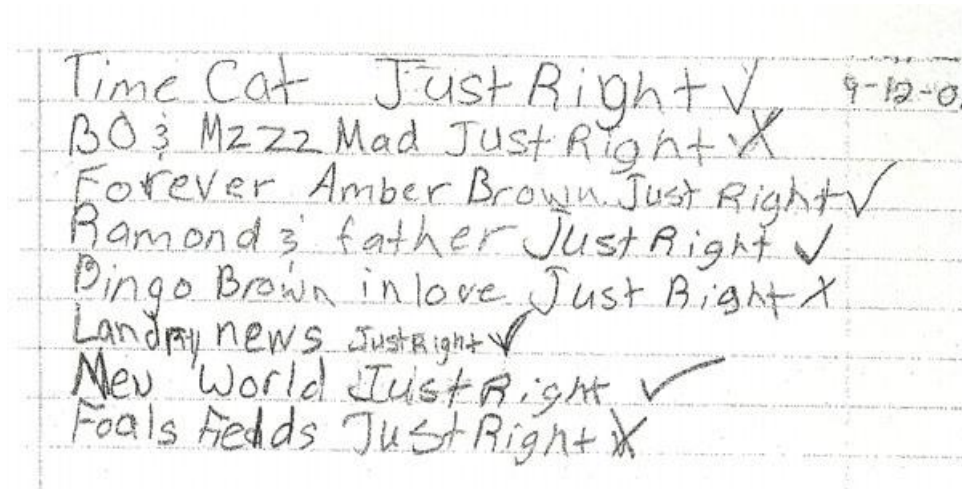 Time Cat Just Right ✓ 9-12-0
BO & Mzzz Mad Just Right X
Forever Amber Brown Just Right ✓
Ramond & father Just Right ✓
Bingo Brown in love Just Right X
news Just Right ✓
World Just Right ✓
Foals Just Right X